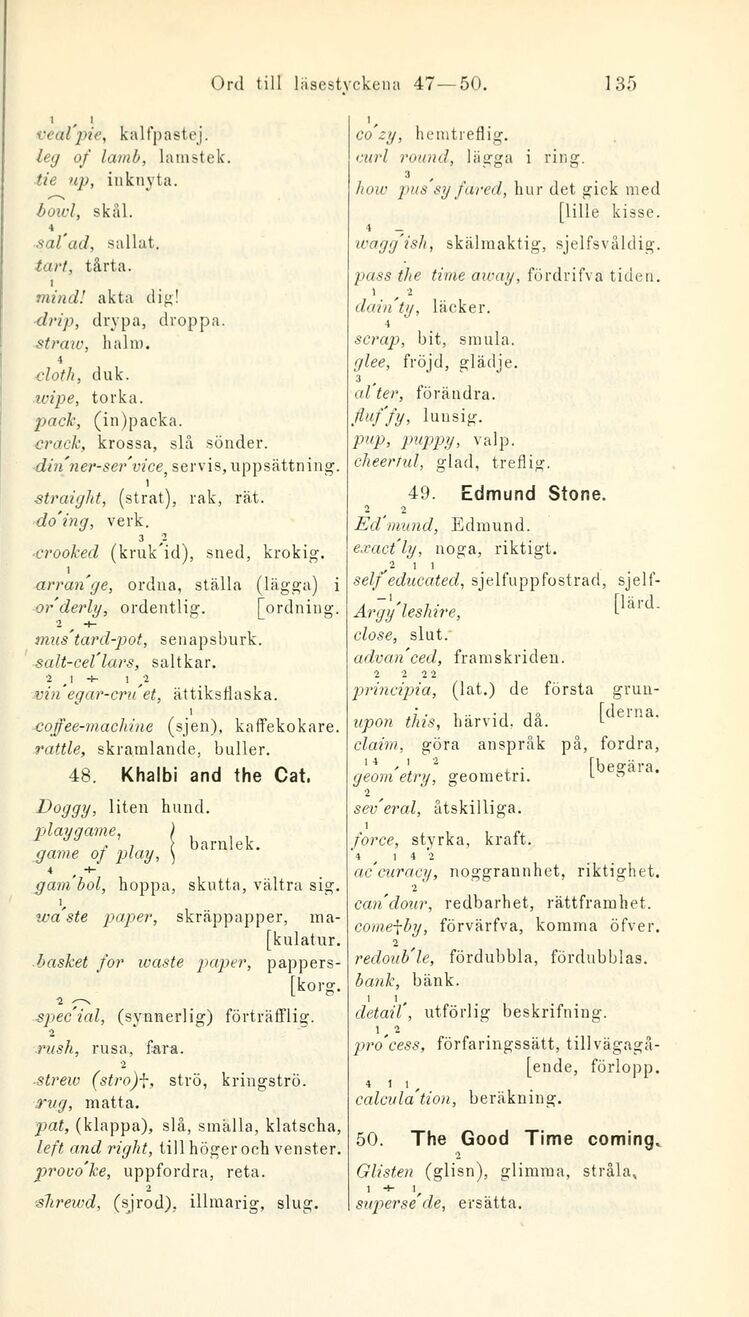 Ord till läsestyckena 47—50. 135
veal'pie, kalfpastej.
leg of lamb, lamstek.
tie up, inknyta.
bowl, skål.
sal'ad, sallat.
tart, tårta.
mind! akta dig!
drip, drypa, droppa.
straw, halm.
cloth, duk.
wipe, torka.
pack, (in)packa.
crack, krossa, slå sönder.
din'ner-ser'vice, servis, uppsättning.
straight, (strat), rak, rät.
do'ing, verk.
crooked (kruk'id), sned, krokig.
arran'ge, ordna, ställa (lägga) i
or'derly, ordentlig. [ordning.
mus'tard-pot, senapsburk.
salt-cel'lars, saltkar.
vin'egar-cru'et, ättiksflaska.
coffee-machine (sjen), kaffekokare.
rattle, skramlande, buller.
48. Khalbi and the Cat.
Doggy, liten hund.
playgame, }
game of play, } barnlek.
gam'bol, hoppa, skutta, vältra sig.
wa'ste paper, skräppapper, ma-
[kulatur.
basket for waste paper, pappers-
[korg.
spec'ial, (synnerlig) förträfflig.
rush, rusa, fara.
strew (stro)†, strö, kringströ.
rug, matta.
pat, (klappa), slå, smälla, klatscha,
left and right, till höger och venster.
provo'ke, uppfordra, reta.
shrewd, (sjrod), illmarig, slug.
co'zy, hemtreflig.
curl round, lägga i ring.
how pus'sy fared, hur det gick med
[lille kisse.
wagg'ish, skälmaktig, sjelfsvåldig.
pass the time away, fördrifva tiden.
dain'ty, läcker.
scrap, bit, smula.
glee, fröjd, glädje.
al'ter, förändra.
fluf'fy, luusig.
pup, puppy, valp.
cheerful, glad, treflig.
49. Edmund Stone.
Ed'mund, Edmund.
exact'ly, noga, riktigt.
self'educated, sjelfuppfostrad, sjelf-
Argy'leshire, [lärd.
close, slut.
advan'ced, framskriden.
principia, (lat.) de första grun-
upon this, härvid, då. [derna.
claim, göra anspråk på, fordra,
geom'etry, geometri. [begära.
sev'eral, åtskilliga.
force, styrka, kraft.
ac'curacy, noggrannhet, riktighet.
can'dour, redbarhet, rättframhet.
come†by, förvärfva, komma öfver.
redoub'le, fördubbla, fördubblas.
bank, bänk.
detail', utförlig beskrifning.
pro'cess, förfaringssätt, tillvägagå-
[ende, förlopp.
calcula'tion, beräkning.
50. The Good Time coming.
Glisten (glisn), glimma, stråla,
superse'de, ersätta.